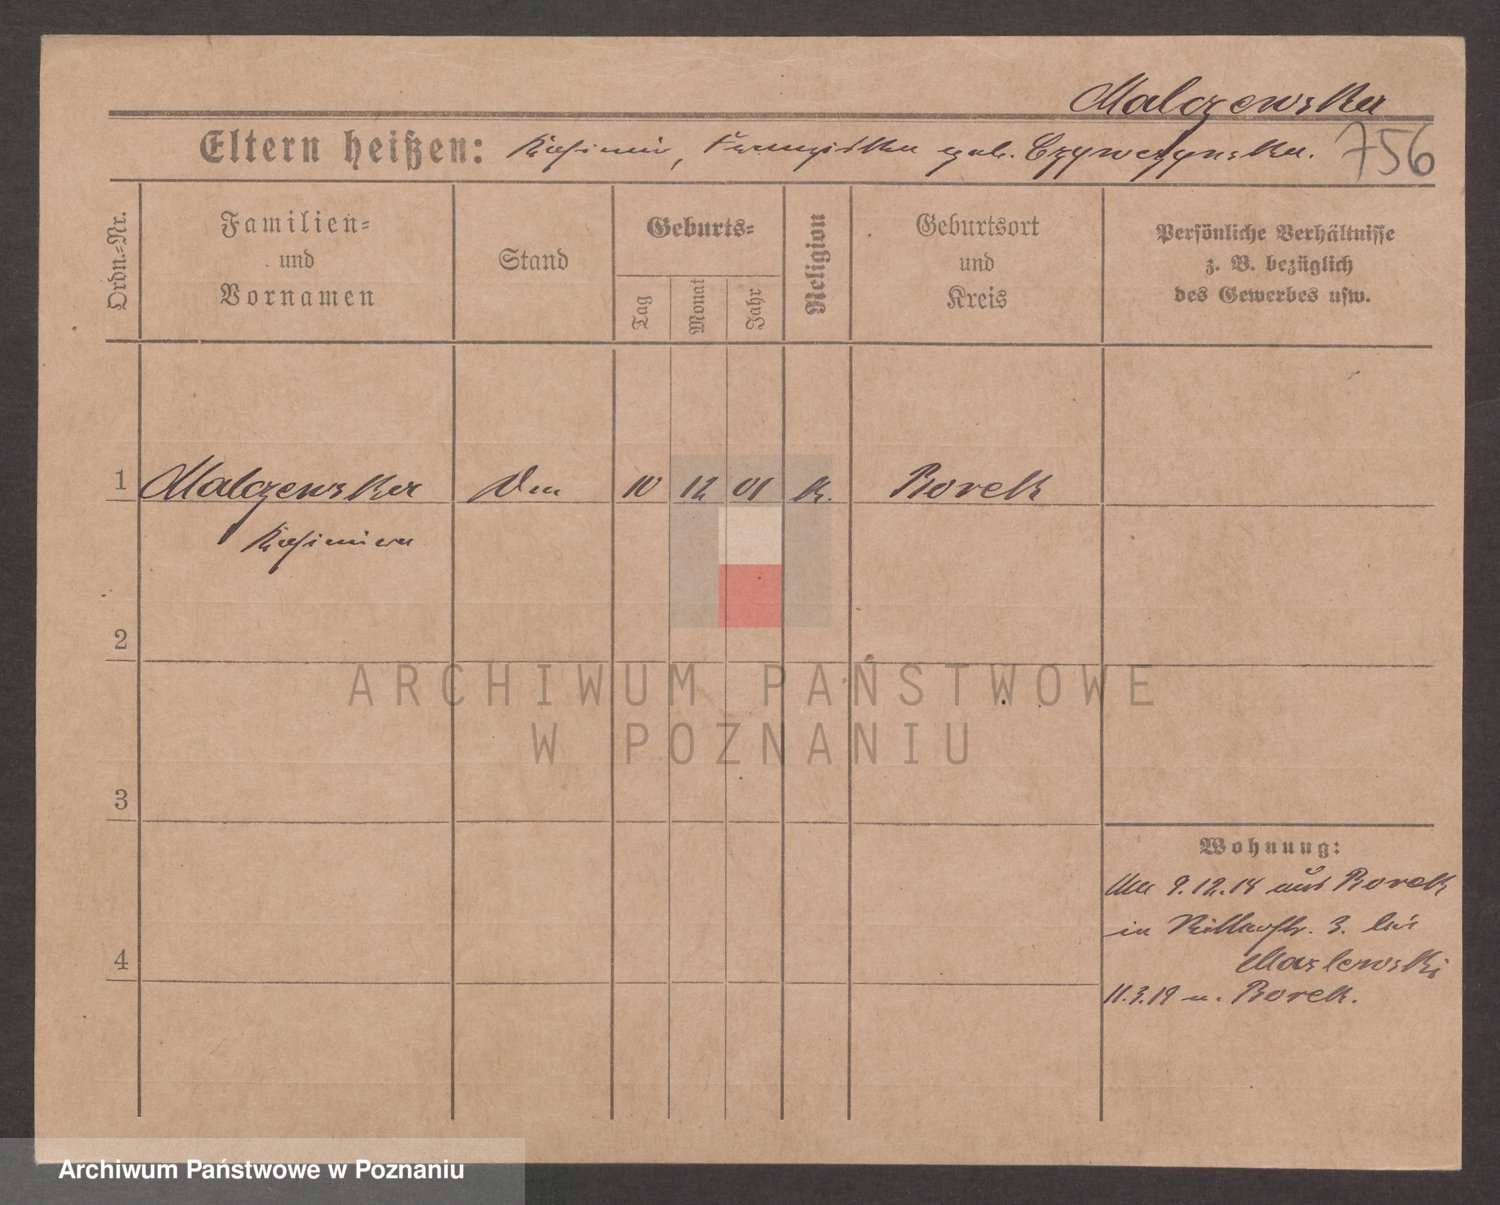 Malczewska
Eltern heißen: Kasimir, Franziska geb. 756
Ordn.-Nr.
Familien-
und
Vornamen
Stand
Geburts-
Tag
Monat
Jahr
Religion
Geburtsort
und
Kreis
Persönliche Verhältnisse
z. B. bezüglich
des Gewerbes usw.
1 Malczewska 10 12 01 k. Borek
Kasimira
2
ARCHIWUM PAŃSTWOWE
W POZNANIU
3
Wohnung:
9.12.18 aus Borek
in Ritterstr. 3. bei
4 Maslewski
11.3.19 n. Borek.
Archiwum Państwowe w Poznaniu